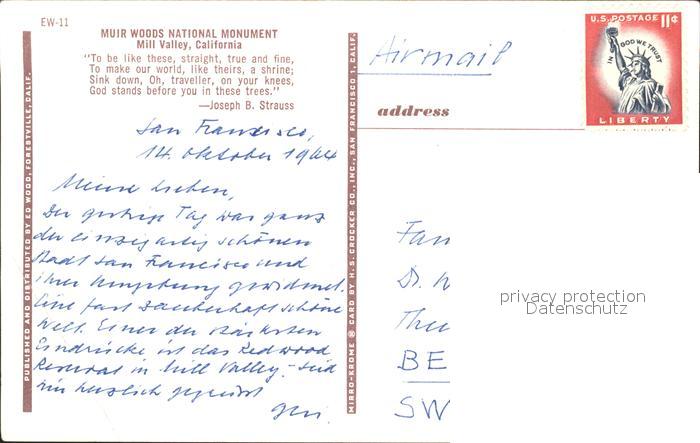 EW-11
MUIR WOODS NATIONAL MONUMENT
Mill Valley, California
"To be like these, straight, true and fine,
To make our world, like theirs, a shrine;
Sink down, Oh, traveller, on your knees,
God stands before you in these trees."
—Joseph B. Strauss
San Francisco,
14. Oktober 1964
Meine Lieben,
Der gestrige Tag war ganz
der einzigartig schönen
Stadt San Francisco und
ihrer Umgebung gewidmet.
Eine fast zauberhaft schöne
Welt. Einer der stärksten
Eindrücke ist das Redwood
in Mill Valley. - Seid
herzlich gegrüsst
PUBLISHED AND DISTRIBUTED BY ED WOOD, FORESTVILLE, CALIF.
MIRRO-KROME ® CARD BY H. S. CROCKER CO., INC., SAN FRANCISCO 1, CALIF.
Airmail
address
U.S. POSTAGE 11¢
IN GOD WE TRUST
LIBERTY
Fam
Dr. W
Thu
BE
SW
privacy protection
Datenschutz